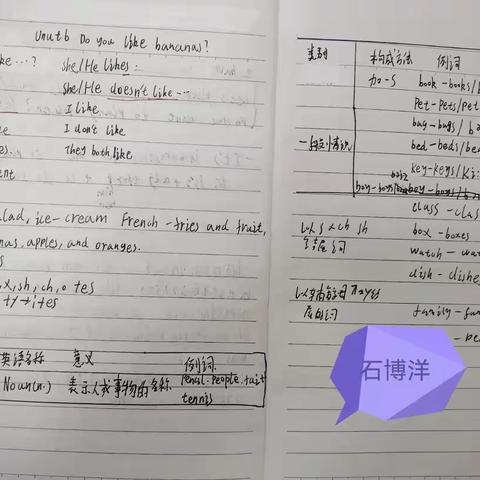 Unit 6 Do you like bananas?
ke…? she/He likes:
she/He doesn't like…
I like
I don't like
es. They both like
ent
lad, ice-cream French-fries and fruit,
nas, apples, and oranges.
s
,x,sh,ch,o tes
ty→ites
英语名称 意义 例词
Noun(n.) 表示人或事物的名称 pencil. people.
tennis
类别 构成方法 例词
加-s book-books/
Pet-Pets/pet
bag-bags/
一般情况 bed-beds/
key-keys/
class-clas
以s x ch sh box-boxes
结尾词 watch-wat
dish-dishe
family-fam
石博洋